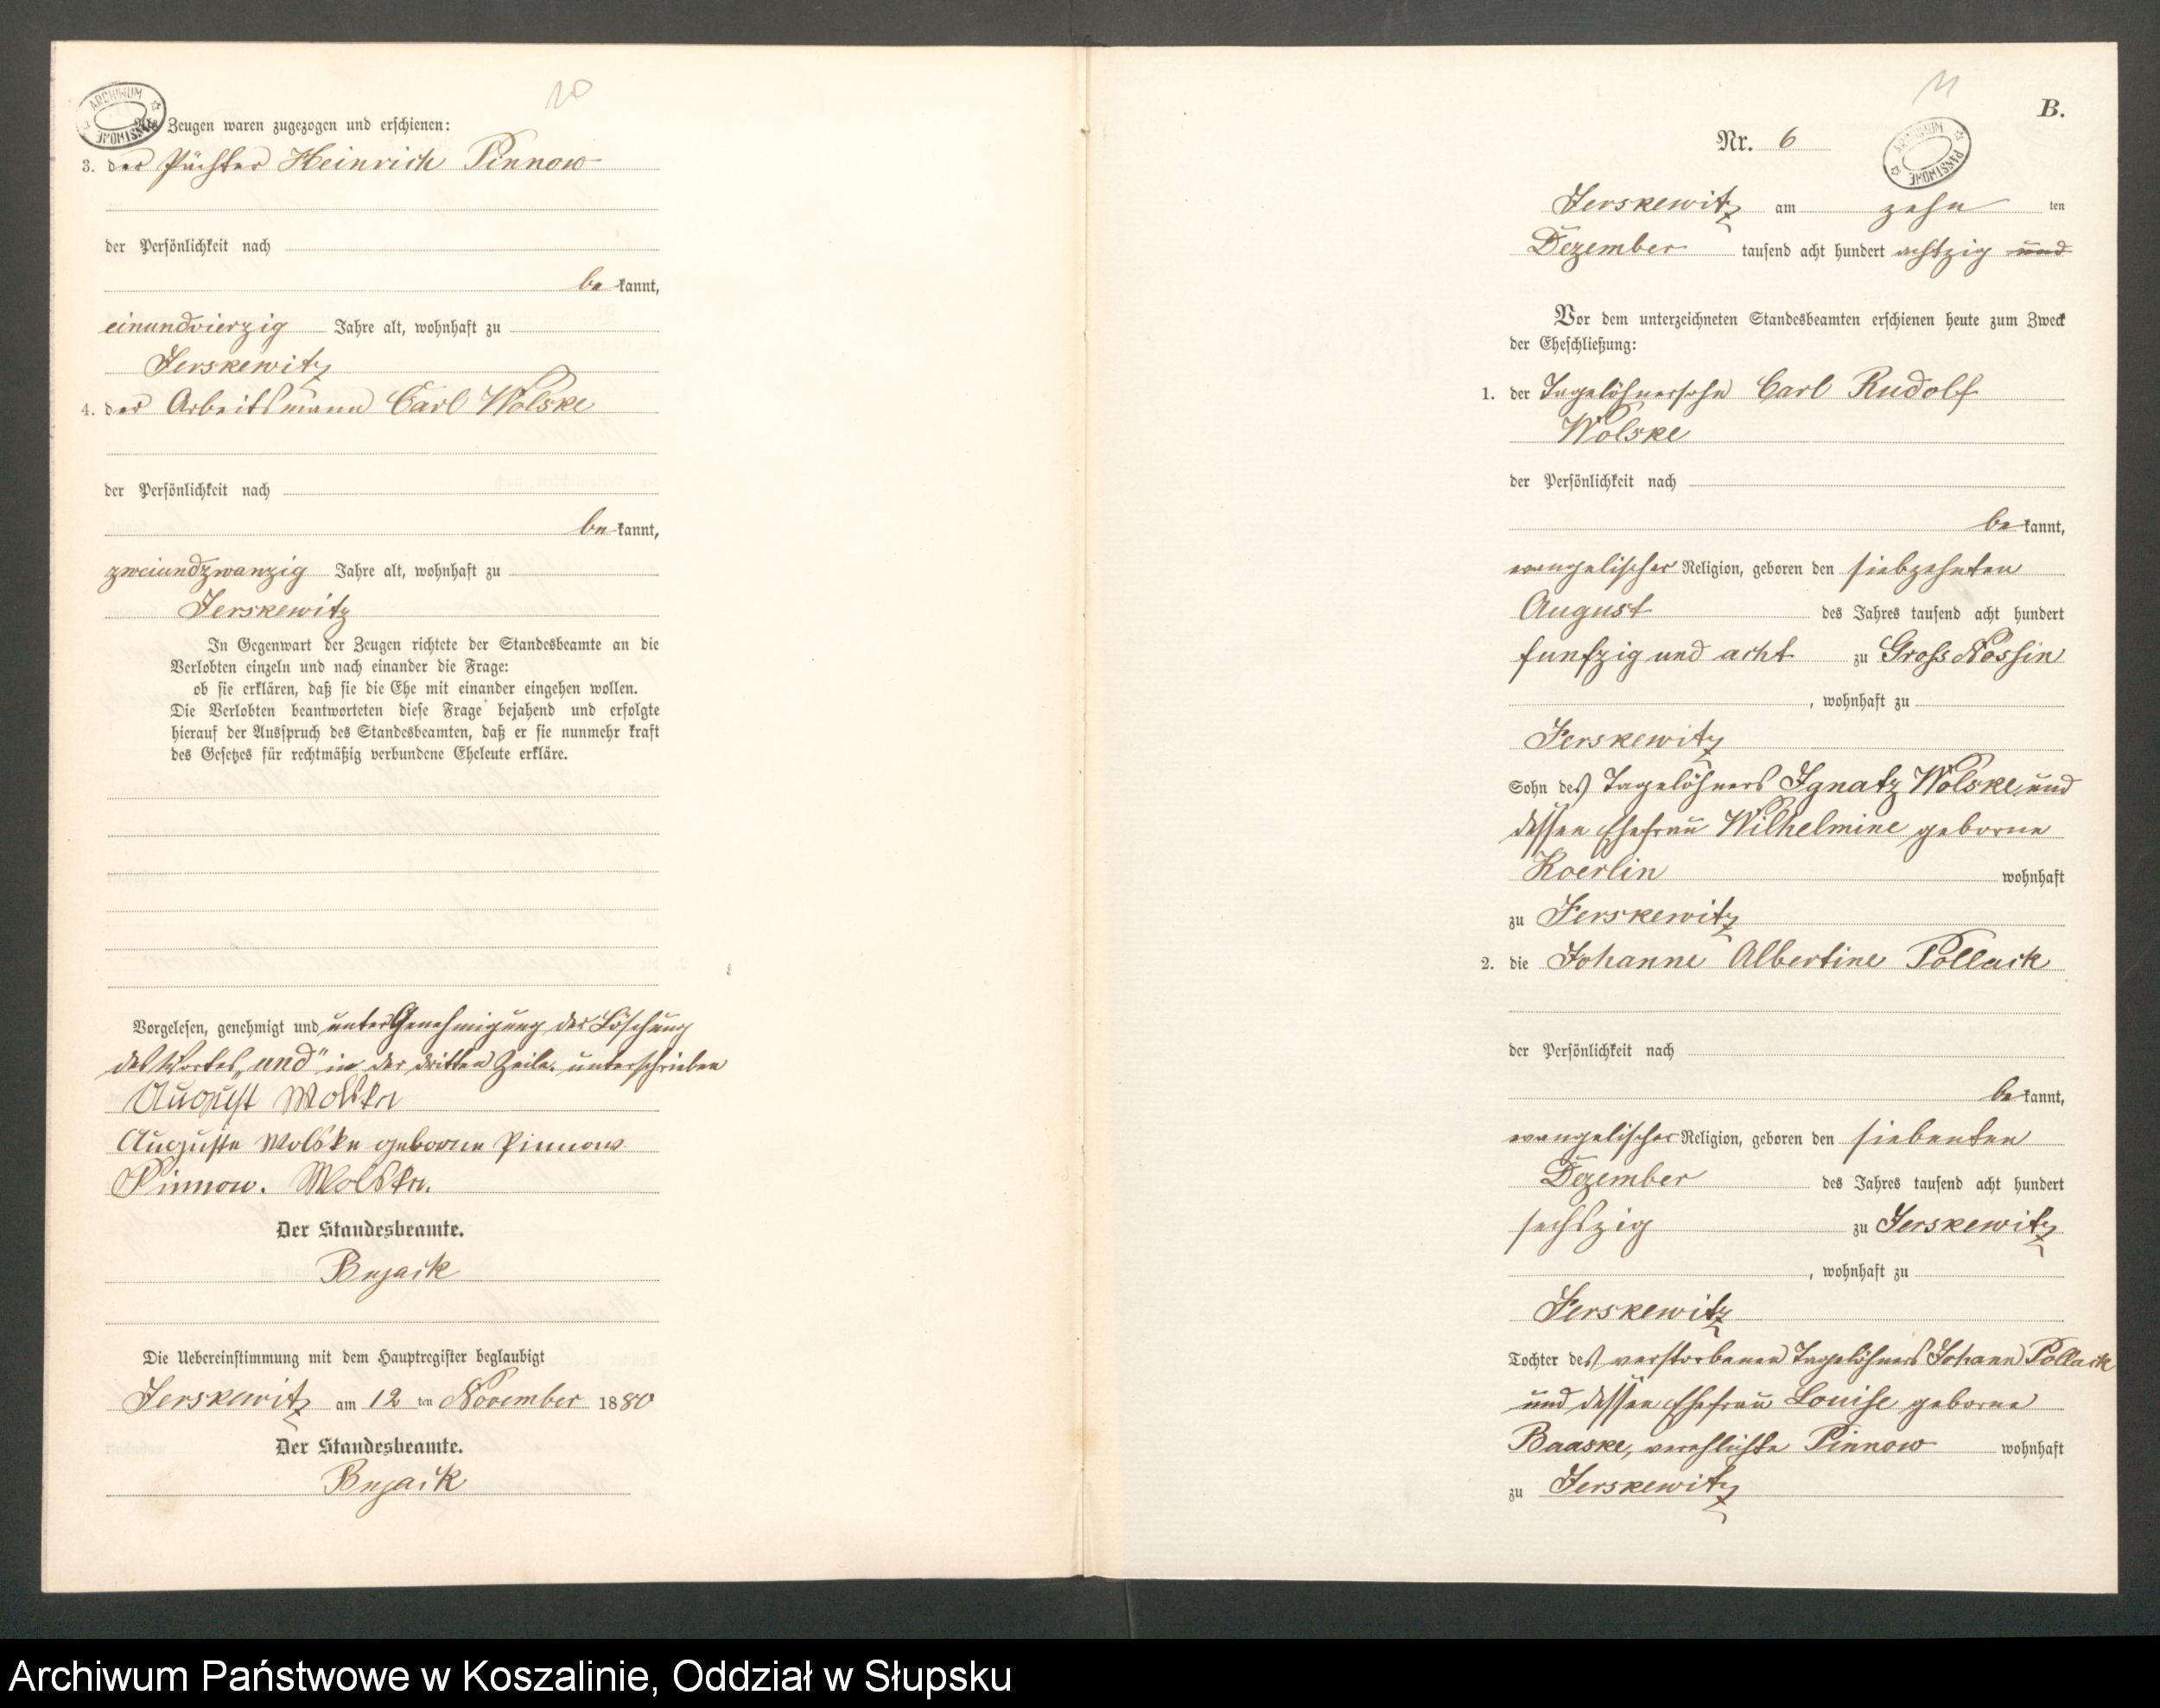 20
ARCHIWUM PAŃSTWOWE
Als Zeugen waren zugezogen und erschienen:
3. der Pächter Heinrich Pinnow
der Persönlichkeit nach
be kannt,
einundvierzig Jahre alt, wohnhaft zu
Jerskewitz
4. der Arbeitsmann Carl Wolske
der Persönlichkeit nach
be kannt,
zweiundzwanzig Jahre alt, wohnhaft zu
Jerskewitz
In Gegenwart der Zeugen richtete der Standesbeamte an die
Verlobten einzeln und nach einander die Frage:
ob sie erklären, daß sie die Ehe mit einander eingehen wollen.
Die Verlobten beantworteten diese Frage bejahend und erfolgte
hierauf der Ausspruch des Standesbeamten, daß er sie nunmehr kraft
des Gesetzes für rechtmäßig verbundene Eheleute erkläre.
Vorgelesen, genehmigt und unter Genehmigung der Löschung
des Wortes „und" in der dritten Zeile. unterschrieben
August Wolske
Auguste Wolske geborne Pinnow
Pinnow. Wolske.
Der Standesbeamte.
Bujack
Die Uebereinstimmung mit dem Hauptregister beglaubigt
Jerskewitz am 12 ten November 1880
Der Standesbeamte.
Bujack
11
B.
Nr. 6
ARCHIWUM PAŃSTWOWE
Jerskewitz am zehn ten
Dezember tausend acht hundert achtzig und
Vor dem unterzeichneten Standesbeamten erschienen heute zum Zweck
der Eheschließung:
1. der Tagelöhnersohn Carl Rudolf
Wolske
der Persönlichkeit nach
be kannt,
evangelischer Religion, geboren den siebzehnten
August des Jahres tausend acht hundert
funfzig und acht zu Gross Nossin
, wohnhaft zu
Jerskewitz
Sohn des Tagelöhners Ignatz Wolske und
dessen Ehefrau Wilhelmine geborne
Koerlin wohnhaft
zu Jerskewitz
2. die Johanne Albertine Pollack
der Persönlichkeit nach
be kannt,
evangelischer Religion, geboren den siebenten
Dezember des Jahres tausend acht hundert
sechszig zu Jerskewitz
, wohnhaft zu
Jerskewitz
Tochter des verstorbenen Tagelöhners Johann Pollack
und dessen Ehefrau Louise geborne
Baaske, verehlichte Pinnow wohnhaft
zu Jerskewitz
Archiwum Państwowe w Koszalinie, Oddział w Słupsku